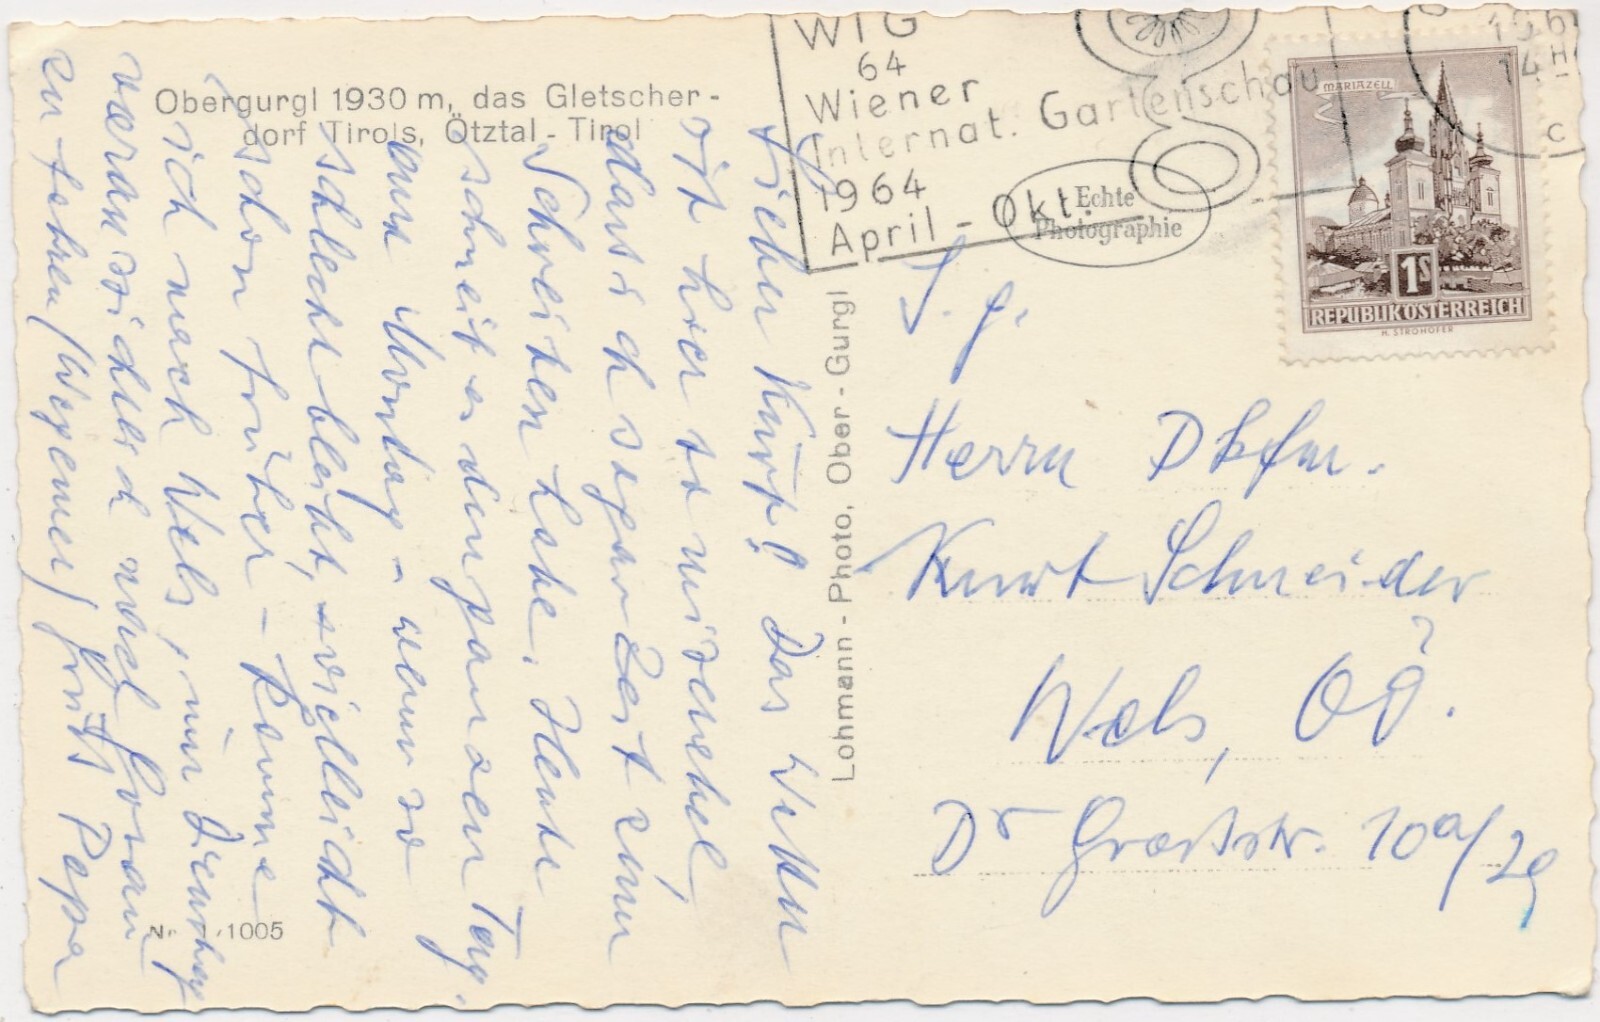 Obergurgl 1930 m, das Gletscher-
dorf Tirols, Ötztal - Tirol
WIG
64
Wiener
Internat. Gartenschau
1964
April - Okt.
Echte
Photographie
MARIAZELL
1S
REPUBLIK ÖSTERREICH
H. STROHOFER
196
14H
C
Lieber Kurt! Das Wetter
ist hier so miserabel,
dass ich sogar Zeit zum
Schreiben habe. Heute
schneit es den ganzen Tag.
Montag - wenn so
schlecht bleibt, vielleicht
schon früher - komme
ich nach Wels, um Dienstag
noch
zu fahren (Wegener) Gruß Papa
Lohmann - Photo, Ober-Gurgl
S. g.
Herrn Dkfm.
Kurt Schneider
Wels, OÖ.
Dr Großstr. 10a/29
1005